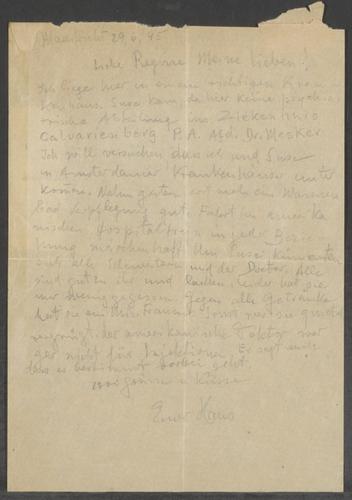 Maastricht 29. 6. 45
Liebe Regine Meine Lieben!
Ich liege hier in einem richtigen Kran
kenhaus. Suse kam, da hier keine psychia
trische Abteilung ins Ziekenhuis
Calvarienberg P.A. Afd. Dr. Mesker
Ich will versuchen dass ich und Suse
in Amsterdamer Krankenhäuser unter
kommen. Nahm gestern erst mal ein Wannen
bad Verpflegung gut. Fahrt im amerika
nischen Hospitaltrein in jeder Bezie
hung märchenhaft. Um Suse kümmerten
sich alle Schwestern und der Doctor. Alle
sind gut zu ihr und lachen, leider hat sie
nur wenig gegessen. Gegen alle Getränke
hat sie ein Misstrauen. Sonst war sie quietsch
vergnügt. der amerikanische Doktor war
gar nicht für Injektionen. Er sagt auch
dass es bestimmt vorbei geht.
grüsse u Küsse
Euer Hans